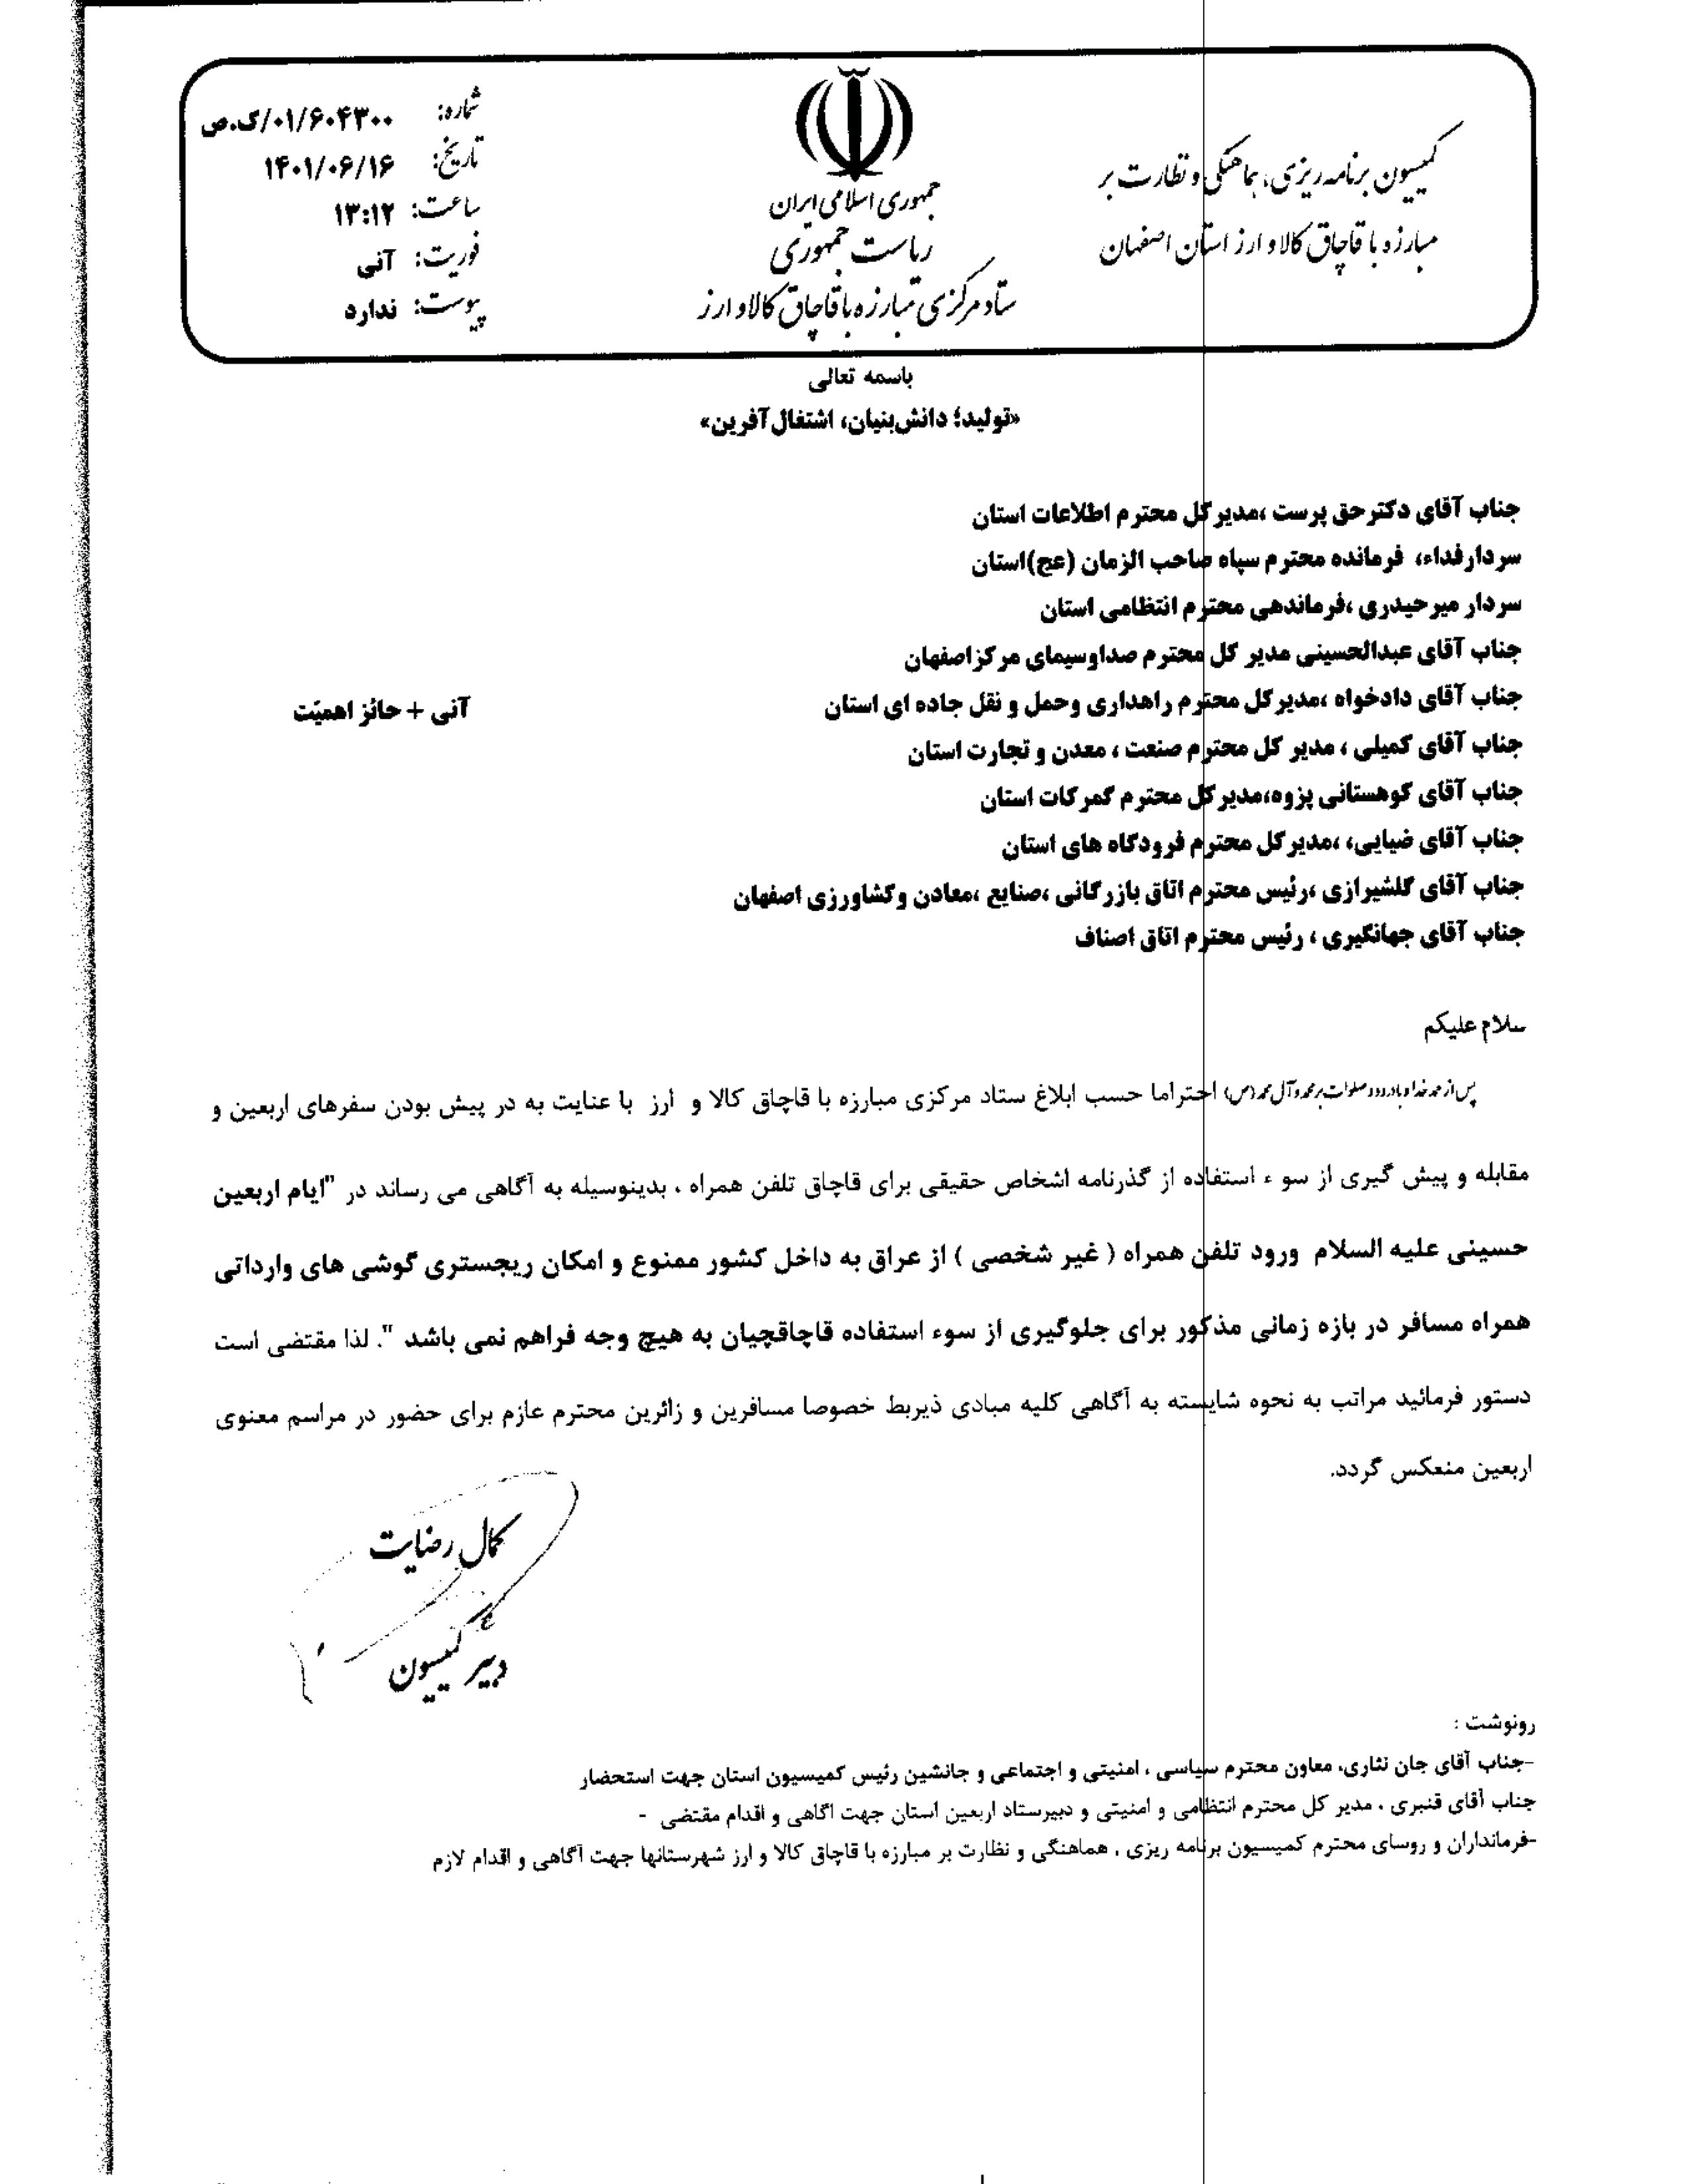 کمیسیون برنامه ریزی، هماهنگی و نظارت بر
مبارزه با قاچاق کالا و ارز استان اصفهان
جمهوری اسلامی ایران
ریاست جمهوری
ستاد مرکزی مبارزه با قاچاق کالا و ارز
شماره: ۰۱/۶۰۴۳۰۰/ک.ص
تاریخ: ۱۴۰۱/۰۶/۱۶
ساعت: ۱۳:۱۲
فوریت: آنی
پیوست: ندارد
باسمه تعالی
«تولید؛ دانش‌بنیان، اشتغال‌آفرین»
جناب آقای دکترحق پرست ،مدیرکل محترم اطلاعات استان
سردارفداء، فرمانده محترم سپاه صاحب الزمان (عج)استان
سردار میرحیدری ،فرماندهی محترم انتظامی استان
جناب آقای عبدالحسینی مدیر کل محترم صداوسیمای مرکزاصفهان
جناب آقای دادخواه ،مدیرکل محترم راهداری وحمل و نقل جاده ای استان
آنی + حائز اهمیّت
جناب آقای کمیلی ، مدیر کل محترم صنعت ، معدن و تجارت استان
جناب آقای کوهستانی پزوه،مدیرکل محترم گمرکات استان
جناب آقای ضیایی، ،مدیرکل محترم فرودگاه های استان
جناب آقای گلشیرازی ،رئیس محترم اتاق بازرگانی ،صنایع ،معادن وکشاورزی اصفهان
جناب آقای جهانگیری ، رئیس محترم اتاق اصناف
سلام علیکم
پس از حمد خدا و با درود و صلوات بر محمد و آل محمد (ص)؛ احتراما حسب ابلاغ ستاد مرکزی مبارزه با قاچاق کالا و ارز با عنایت به در پیش بودن سفرهای اربعین و
مقابله و پیش گیری از سو ء استفاده از گذرنامه اشخاص حقیقی برای قاچاق تلفن همراه ، بدینوسیله به آگاهی می رساند در "ایام اربعین
حسینی علیه السلام ورود تلفن همراه ( غیر شخصی ) از عراق به داخل کشور ممنوع و امکان ریجستری گوشی های وارداتی
همراه مسافر در بازه زمانی مذکور برای جلوگیری از سوء استفاده قاچاقچیان به هیچ وجه فراهم نمی باشد ". لذا مقتضی است
دستور فرمائید مراتب به نحوه شایسته به آگاهی کلیه مبادی ذیربط خصوصا مسافرین و زائرین محترم عازم برای حضور در مراسم معنوی
اربعین منعکس گردد.
کمال رضایت
دبیر کمیسیون
رونوشت :
-جناب آقای جان نثاری، معاون محترم سیاسی ، امنیتی و اجتماعی و جانشین رئیس کمیسیون استان جهت استحضار
جناب آقای قنبری ، مدیر کل محترم انتظامی و امنیتی و دبیرستاد اربعین استان جهت آگاهی و اقدام مقتضی -
-فرمانداران و روسای محترم کمیسیون برنامه ریزی ، هماهنگی و نظارت بر مبارزه با قاچاق کالا و ارز شهرستانها جهت آگاهی و اقدام لازم